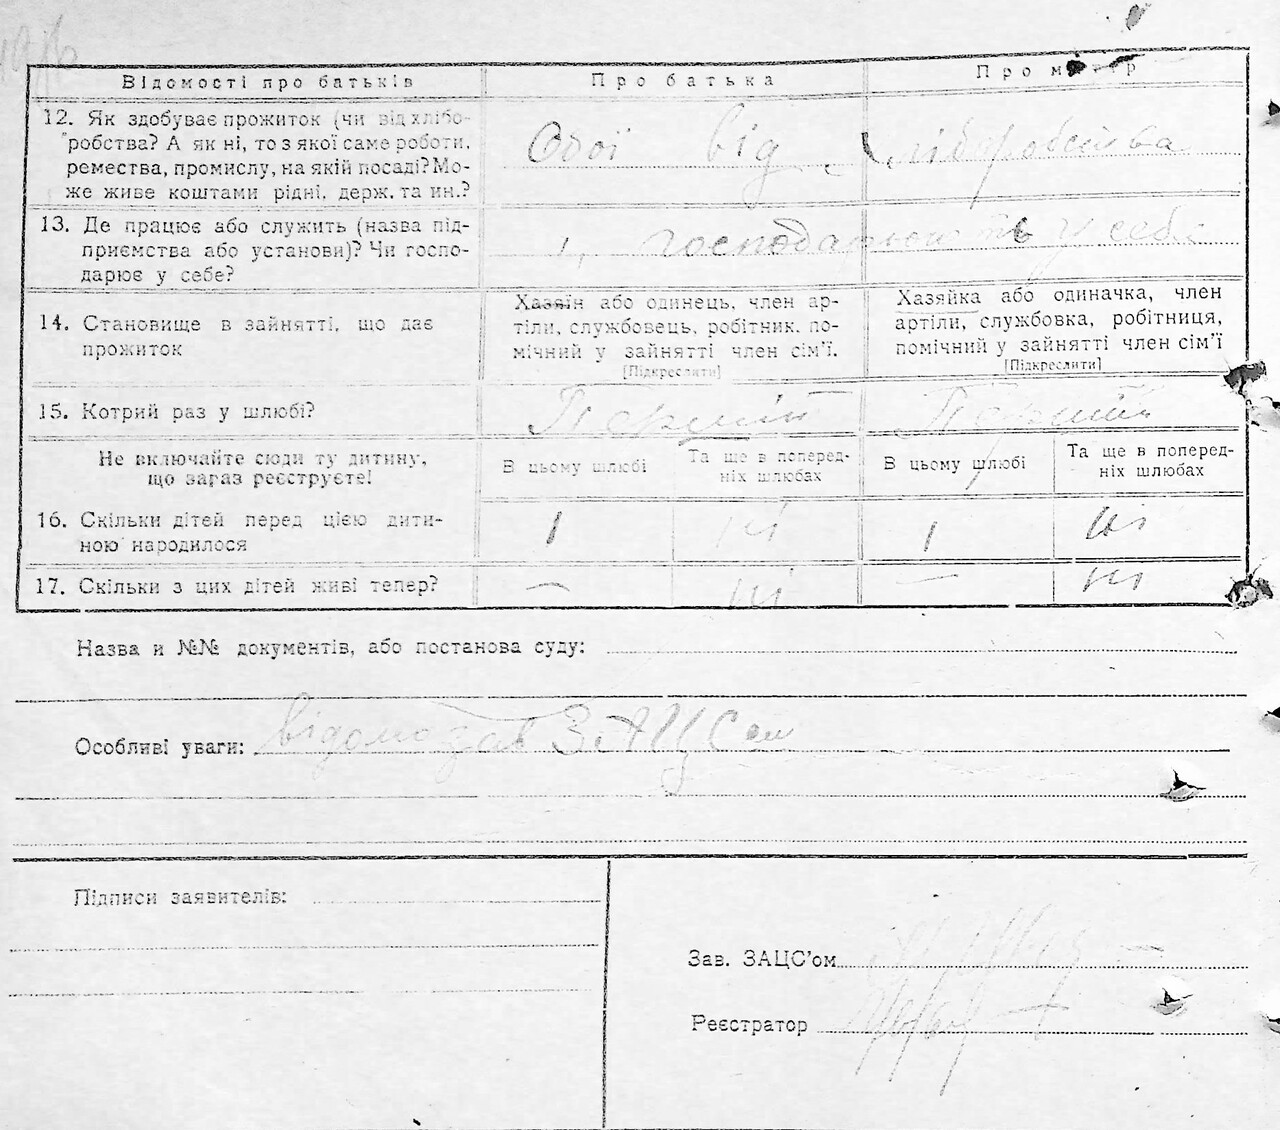 Відомості про батьків Про батька Про матір
12. Як здобуває прожиток (чи від хлібо-
робства? А як ні, то з якої саме роботи,
ремества, промислу, на якій посаді? Мо-
же живе коштами рідні, держ. та ин.?
Обої від хліборобства
13. Де працює або служить (назва під-
приємства або установи)? Чи госпо-
дарює у себе?
господарюють у себе
14. Становище в зайнятті, що дає
прожиток
Хазяїн або одинець, член ар-
тіли, службовець, робітник, по-
мічний у зайнятті член сім'ї.
[Підкреслити]
Хазяйка або одиначка, член
артіли, службовка, робітниця,
помічний у зайнятті член сім'ї
[Підкреслити]
15. Котрий раз у шлюбі? Перший Перший
Не включайте сюди ту дитину,
що зараз реєструєте!
В цьому шлюбі
Та ще в поперед-
ніх шлюбах
В цьому шлюбі
Та ще в поперед-
ніх шлюбах
16. Скільки дітей перед цією дити-
ною народилося
1 ні 1 ні
17. Скільки з цих дітей живі тепер? — ні — ні
Назва и №№ документів, або постанова суду:
Особливі уваги: ЗАЦСом
Підписи заявителів:
Зав. ЗАЦС'ом
Реєстратор